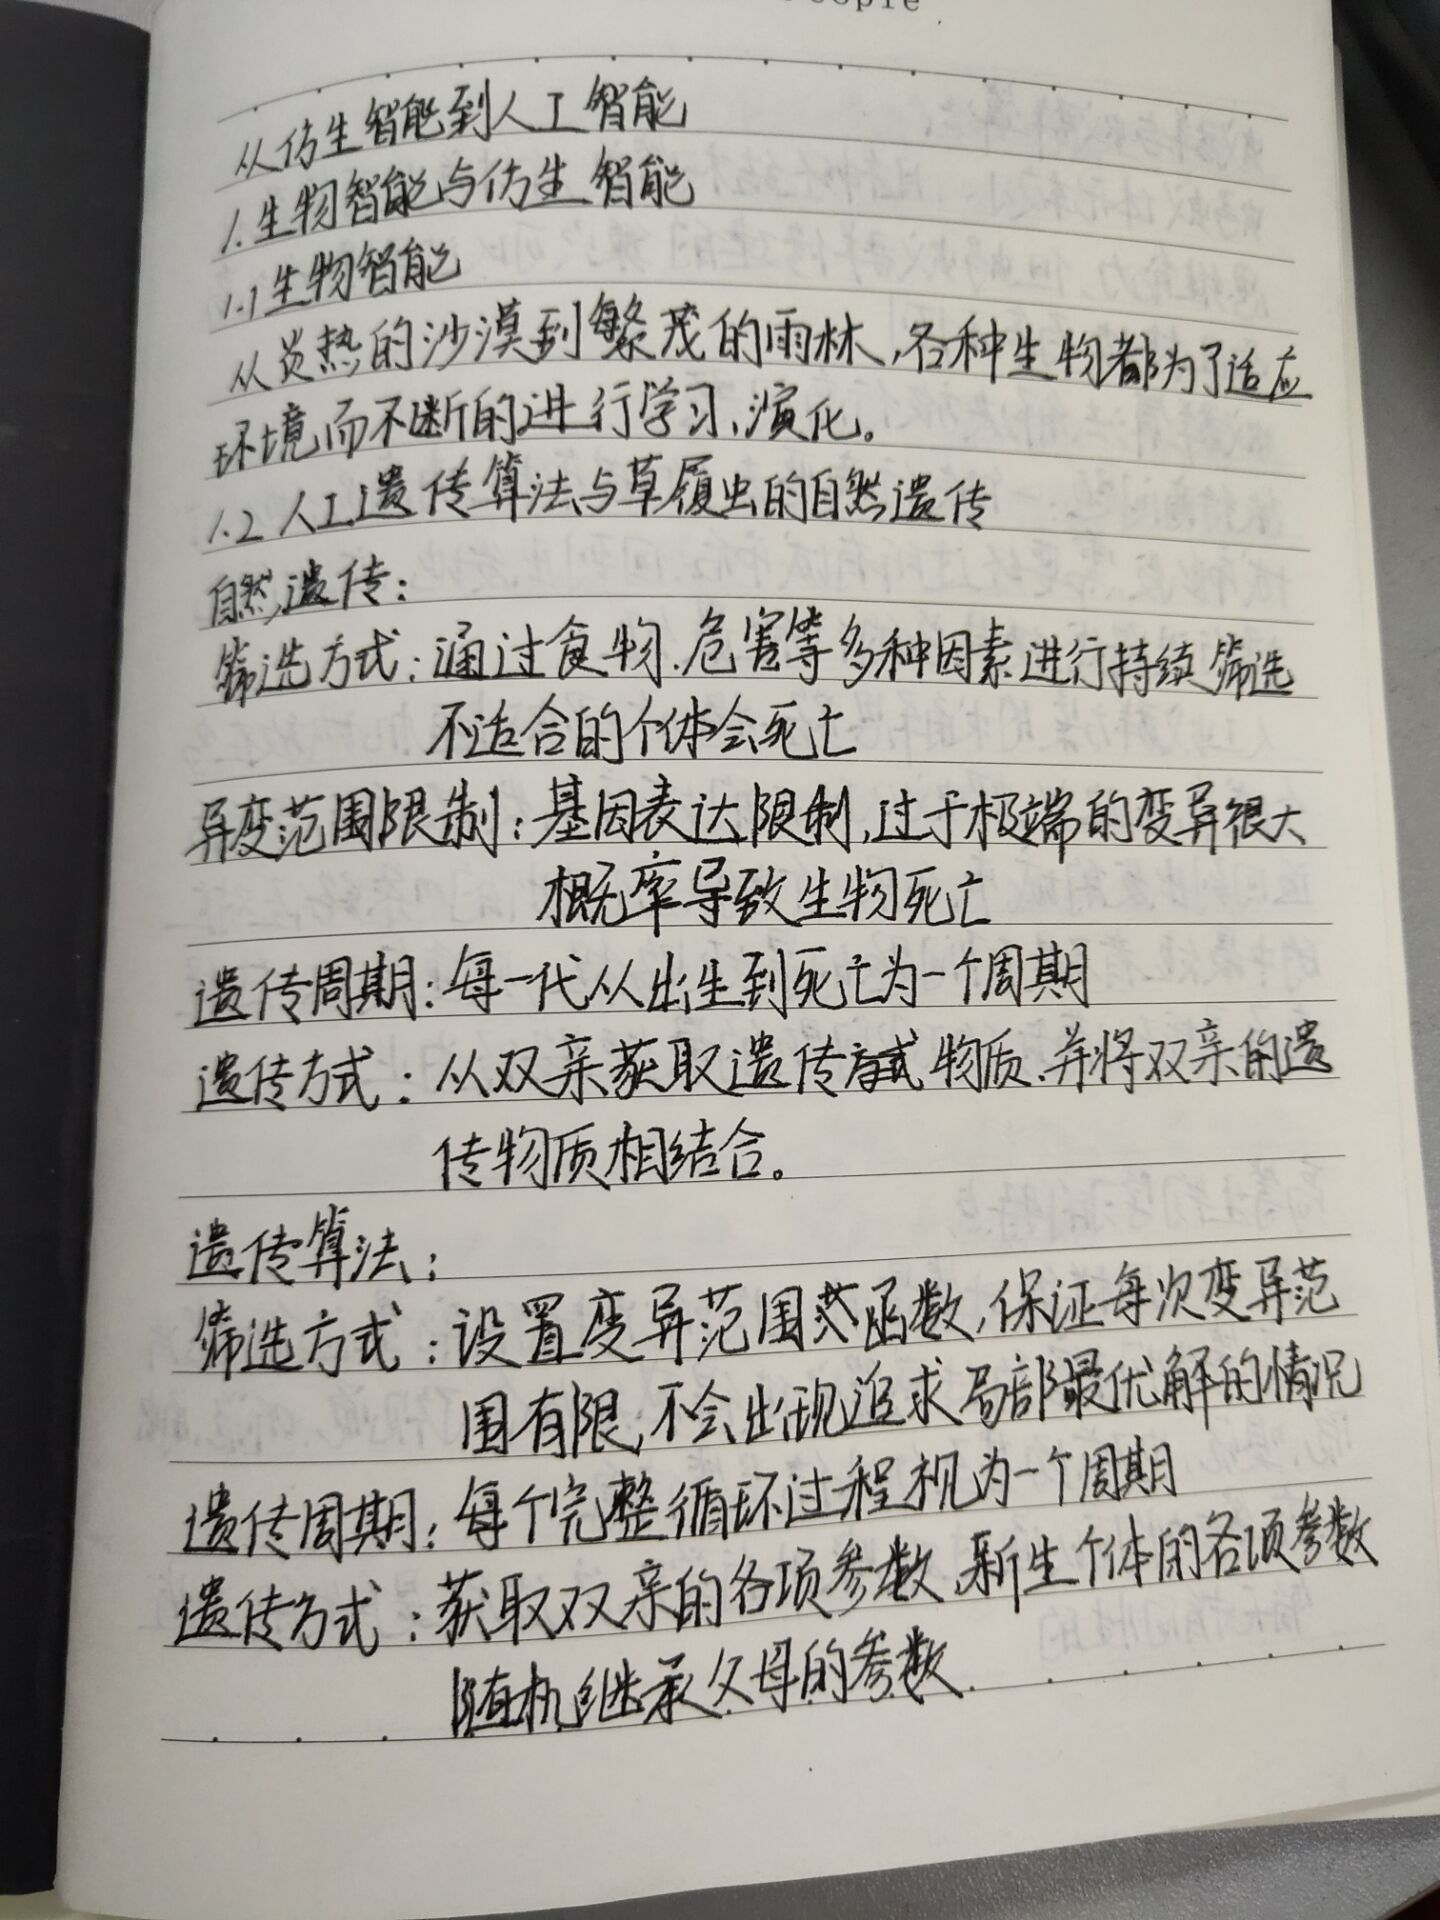 从仿生智能到人工智能
1.生物智能与仿生智能
1.1生物智能
从炎热的沙漠到繁茂的雨林,各种生物都为了适应
环境而不断的进行学习、演化。
1.2人工遗传算法与草履虫的自然遗传
自然遗传:
筛选方式:通过食物、危害等多种因素进行持续筛选
不适合的个体会死亡
异变范围限制:基因表达限制,过于极端的变异很大
概率导致生物死亡
遗传周期:每一代从出生到死亡为一个周期
遗传方式:从双亲获取遗传物质,并将双亲的遗
传物质相结合。
遗传算法:
筛选方式:设置变异范围函数,保证每次变异范
围有限,不会出现追求局部最优解的情况
遗传周期:每个完整循环过程视为一个周期
遗传方式:获取双亲的各项参数,新生个体的各项参数
随机继承父母的参数